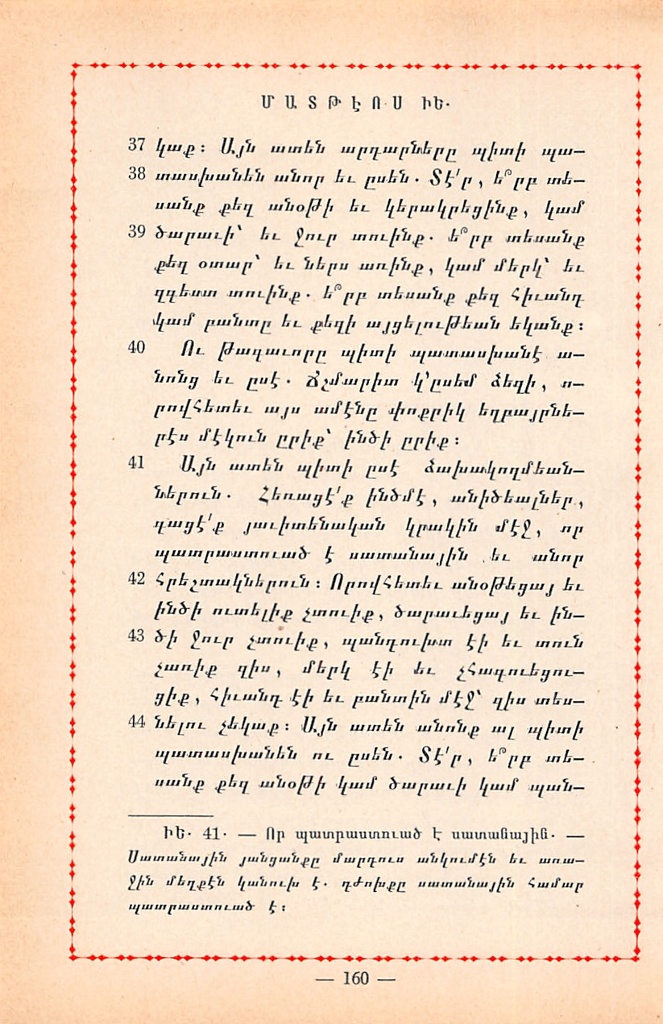 ՄԱՏԹԷՈՍ ԻԵ․
37 կաք։ Այն ատեն արդարները պիտի պա—
38 տասխանեն անոր եւ ըսեն․ Տէ՛ր, ե՞րբ տե—
սանք քեզ անօթի եւ կերակրեցինք, կամ
39 ծարաւի՝ եւ ջուր տուինք․ ե՞րբ տեսանք
քեզ օտար՝ եւ ներս առինք, կամ մերկ՝ եւ
զգեստ տուինք․ ե՞րբ տեսանք քեզ հիւանդ
կամ բանտը եւ քեզի այցելութեան եկանք։
40 Ու թագաւորը պիտի պատասխանէ ա—
նոնց եւ ըսէ․ Ճշմարիտ կ՚ըսեմ ձեզի, ո—
րովհետեւ այս ամէնը փոքրիկ եղբայրնե—
րէս մէկուն ըրիք՝ ինծի ըրիք։
41 Այն ատեն պիտի ըսէ ձախակողմեան—
ներուն․ Հեռացէ՛ք ինձմէ, անիծեալներ,
գացէ՛ք յաւիտենական կրակին մէջ, որ
պատրաստուած է սատանային եւ անոր
42 հրեշտակներուն։ Որովհետեւ անօթեցայ եւ
ինծի ուտելիք չտուիք, ծարաւեցայ եւ ին—
43 ծի ջուր չտուիք, պանդուխտ էի եւ տուն
չառիք զիս, մերկ էի եւ չհագուեցու—
ցիք, հիւանդ էի եւ բանտին մէջ՝ զիս տես—
44 նելու չեկաք։ Այն ատեն անոնք ալ պիտի
պատասխանեն ու ըսեն․ Տէ՛ր, ե՞րբ տե—
սանք քեզ անօթի կամ ծարաւի կամ պան—
ԻԵ․ 41․ — Որ պատրաստուած է սատանային․ —
Սատանային յանցանքը մարդուս անկումէն եւ առա—
ջին մեղքէն կանուխ է․ դժոխքը սատանային համար
պատրաստուած է։
— 160 —